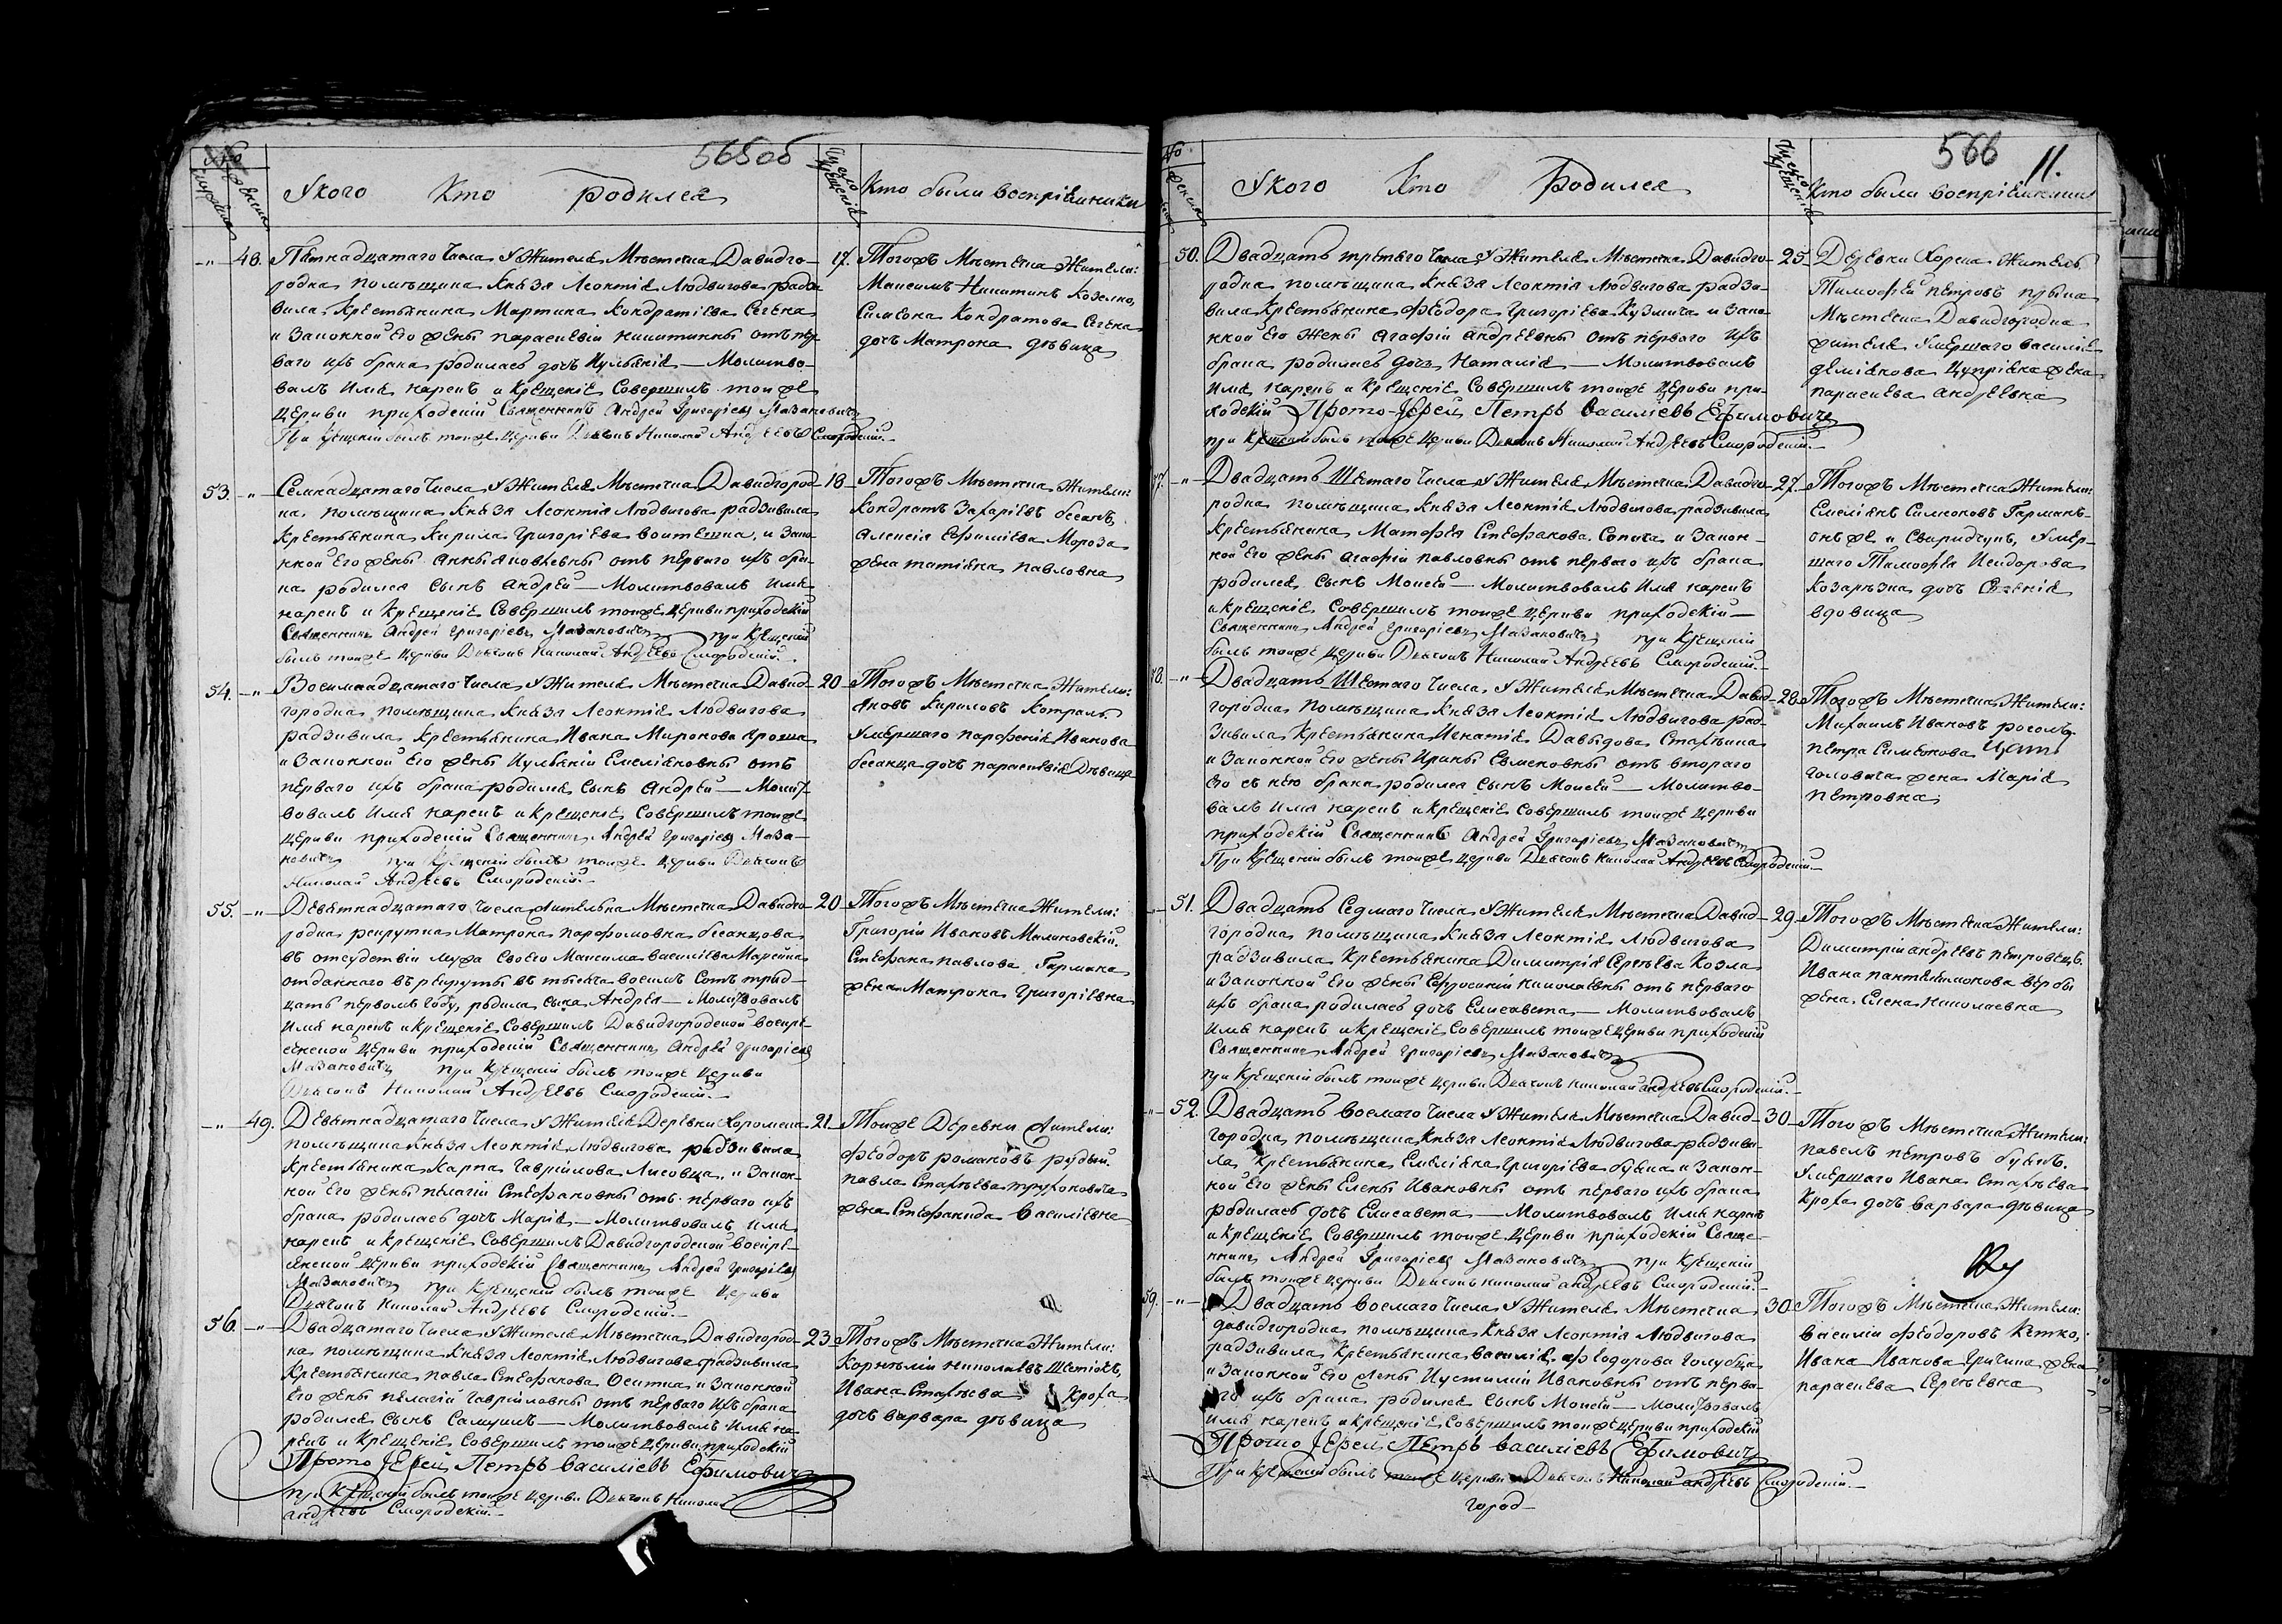 565об
№
У кого Кто Родился
Число крещенія
Кто были воспріемники
48. Пятнадцатаго Числа У Жителя Мѣстечка Давидго-
родка помѣщика Князя Леонтія Людвигова радзи-
вила Крестьянина Мартина Кондратіева Сечена
и Законной Его жены параскевіи никитины отъ пер
ваго ихъ брака родилась дочь Иульянія — Молитво-
валъ Имя нарекъ и Крещеніе Совершилъ тоиже
Церкви приходскій Священникъ Андрей Григоріевъ Мазановичъ
При крещеніи былъ тоиже Церкви Діаконъ Николай Андреевъ Смородскій.
17. Тогожъ Мѣстечка Жители:
Максимъ Никитинъ Козелко,
Симеона Кондратова Сечена
дочь Матрона дѣвица
53. Семнадцатаго Числа У Жителя Мѣстечка Давидгород-
ка помѣщика Князя Леонтія Людвигова радзивила
Крестьянина Кирила Григоріева воитешка, и Зако-
нной Его жены Анны Яковлевны отъ перваго ихъ бра-
ка родился сынъ Андрей — Молитвовалъ Имя
нарекъ и Крещеніе Совершилъ тоиже Церкви приходскій
Священникъ Андрей Григоріевъ Мазановичъ при Крещеніи
былъ тоиже Церкви Діаконъ Николай Андреевъ Смородскій.
18 Тогожъ Мѣстечка Жители:
Кондратъ Захаріевъ бесанъ,
Алексія Ефиміева Мороза
жена татіана павловна
54. Восимнадцатаго Числа У Жителя Мѣстечка Давид-
городка помѣщика Князя Леонтія Людвигова
радзивила Крестьянина Ивана Миронова Кроша
и Законной Его жены Иульяніи Емеліяновны отъ
перваго ихъ брака родился Сынъ Андрей — Молит-
вовалъ Имя нарекъ и Крещеніе Совершилъ тоиже
Церкви приходскій Священникъ Андрей Григоріевъ Маза-
новичъ при Крещеніи былъ тоиже Церкви Діаконъ
Николай Андреевъ Смородскій.
20 Тогожъ Мѣстечка Жители:
Яковъ Кириловъ Котраль
Умершаго парфенія Иванова
бесанца дочь параскевія Дѣвица
55. Девятнадцатаго Числа Жителька Мѣстечка Давидго-
родка рекрутка Матрона парфомовна бесанцова
въ отсудствіи мужа своего Максима василіева Марейка
отданнаго въ рекруты въ тысяча восемь Сотъ трид-
цать первомъ году, родила сына Андрея — Молитвовалъ
Имя нарекъ и Крещеніе Совершилъ Давидгородской воскре-
сенской Церкви приходскій Священникъ Андрей Григоріевъ
Мазановичъ при Крещеніи былъ тоиже Церкви
Діаконъ Николай Андреевъ Смородскій.
20 Тогожъ Мѣстечка Жители:
Григорій Ивановъ Малиновскій.
Стефана павлова Гармана
жена Матрона Григоріевна
49. Девятнадцатаго Числа У Жителя Деревни Хоромска
помѣщика Князя Леонтія Людвигова радзивила
Крестьянина Карпа Гавріилова Лисовца, и Закон-
ной Его жены пелагіи Стефановны отъ перваго ихъ
брака родилась дочь Марія — Молитвовалъ Имя
нарекъ и Крещеніе Совершилъ Давидгородской воскре-
сенской Церкви приходскій Священникъ Андрей Григоріевъ
Мазановичъ при Крещеніи былъ тоиже Церкви
Діаконъ Николай Андреевъ Смородскій.
21. Тоиже Деревни Жители:
Феодоръ романовъ рудый.
павла Стахѣева трухоновича
жена Стефанида Василіевна
56. Двадцатаго Числа У Жителя Мѣстечка Давидгород-
ка помѣщика Князя Леонтія Людвигова радзивила
Крестьянина павла Стефанова Осипка и Законной
Его жены пелагіи Гавріиловны отъ перваго ихъ брака
родился сынъ Самуилъ — Молитвовалъ Имя на-
рекъ и Крещеніе Совершилъ тоиже Церкви приходскій
Прото Іерей Петръ Василіевъ Ефимовичъ
при Крещеніи былъ тоиже Церкви Діаконъ Николай
андреевъ Смородскій.
23 Тогожъ Мѣстечка Жители:
Корнилій николаевъ Шетюкъ,
Ивана Стахѣева Кроха
дочь варвара дѣвица
566 11.
№
У кого Кто Родился
Число крещенія
Кто были воспріемники
50. Двадцать третьяго Числа У Жителя Мѣстечка Давидго-
родка помѣщика Князя Леонтія Людвигова радзи-
вила Крестьянина Феодора Григоріева Кузмича и Зако-
нной Его Жены Агафіи андреевны отъ перваго ихъ
брака родилась дочь Наталія — Молитвовалъ
Имя нарекъ и Крещеніе Совершилъ тоиже Церкви при-
ходскій Прото-Іерей Петръ Василіевъ Ефимовичъ
при Крещеніи былъ тоиже Церкви Діаконъ Николай Андреевъ Смородскій.
25 Деревни Хорска Житель
Тимофей петровъ
Мѣстечка Давидгородка
жителя Умершаго василія
демянова Цупріяна жена
параскева андреевна
57. Двадцать Шестаго Числа У Жителя Мѣстечка Давидго-
родка помѣщика Князя Леонтія Людвигова радзивила
Крестьянина Матфея Стефанова Сопича и Закон-
ной Его жены Агафіи павловны отъ перваго ихъ брака
родился сынъ Моисей — Молитвовалъ Имя нарекъ
и Крещеніе Совершилъ тоиже Церкви приходскій —
Священникъ Андрей Григоріевъ Мазановичъ при Крещеніи
былъ тоиже Церкви Діаконъ Николай Андреевъ Смородскій.
27 Тогожъ Мѣстечка Жители:
Емеліянъ Симоновъ Гарманъ-
онъ же и Свиридчукъ, Умер-
шаго Тимофея Исидорова
Козарѣза дочь
вдовица
58. Двадцать Шестаго Числа У Жителя Мѣстечка Давид-
городка помѣщика Князя Леонтія Людвигова рад-
зивила Крестьянина Игнатія Давыдова Стахѣица
и Законной Его жены Ирины Евменовны отъ втораго
его съ нею брака родился сынъ Моисей — Молитво-
валъ Имя нарекъ и Крещеніе Совершилъ тоиже Церкви
приходскій Священникъ Андрей Григоріевъ Мазановичъ
При Крещеніи былъ тоиже Церкви Діаконъ Николай Андреевъ Смородскій.
28 Тогожъ Мѣстечка Жители:
Михаилъ Ивановъ росомъ
петра Симонова
головача жена Марія
петровна
51. Двадцать Седмаго Числа У Жителя Мѣстечка Давид-
городка помѣщика Князя Леонтія Людвигова
радзивила Крестьянина Димитрія Сергѣева Козла
и Законной Его жены Ефросиніи Николаевны отъ перваго
ихъ брака родилась дочь Елисавета — Молитвовалъ
Имя нарекъ и Крещеніе Совершилъ тоиже Церкви приходскій
Священникъ Андрей Григоріевъ Мазановичъ
при Крещеніи былъ тоиже Церкви Діаконъ Николай андреевъ Смородскій.
29 Тогожъ Мѣстечка Жители:
Димитрій андреевъ петровецъ.
Ивана пантелимонова вербы
жена Елена Николаевна
52. Двадцать восмаго Числа У Жителя Мѣстечка Давид-
городка помѣщика Князя Леонтія Людвигова радзиви-
ла Крестьянина Емеліяна Григоріева буяна и Закон-
ной Его жены Елены Ивановны отъ перваго ихъ брака
родилась дочь Елисавета — Молитвовалъ Имя нарекъ
и Крещеніе Совершилъ тоиже Церкви приходскій Свяще-
нникъ Андрей Григоріевъ Мазановичъ при Крещеніи
былъ тоиже Церкви Діаконъ николай андреевъ Смородскій.
30 Тогожъ Мѣстечка Жители:
павелъ петровъ буянъ.
Умершаго Ивана Стахѣева
Кроха дочь варвара дѣвица
59. Двадцать восмаго Числа У Жителя Мѣстечка
давидгородка помѣщика Князя Леонтія Людвигова
радзивила Крестьянина василія Феодорова Голубца
и Законной Его жены Иустиніи Ивановны отъ перва-
го ихъ брака родился сынъ Моисей — Молитвовалъ
Имя нарекъ и Крещеніе Совершилъ тоиже Церкви приходскій
Прото Іерей Петръ василіевъ Ефимовичъ
При Крещеніи былъ тоиже Церкви Діаконъ Николай андреевъ Смородскій.
30 Тогожъ Мѣстечка Жители:
василій Феодоровъ Кетко,
Ивана Иванова Гричина жена
параскева Сергѣевна
город-